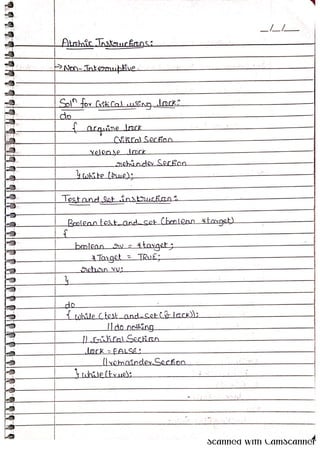 __/__/__
Atomic Instructions:
→ Non-Interruptive
Solⁿ for Critical using lock:
do
{ acquire lock
Critical Section
release lock
remainder Section
} while (true);
Test and Set instructions:
Boolean test_and_set (boolean *target)
{
boolean rv = *target;
*Target = TRUE;
return rv;
}
do
{ while (test_and_set(& lock));
// do nothing
// Critical Section
lock = FALSE;
// remainder Section
} while (true);
Scanned with CamScanner